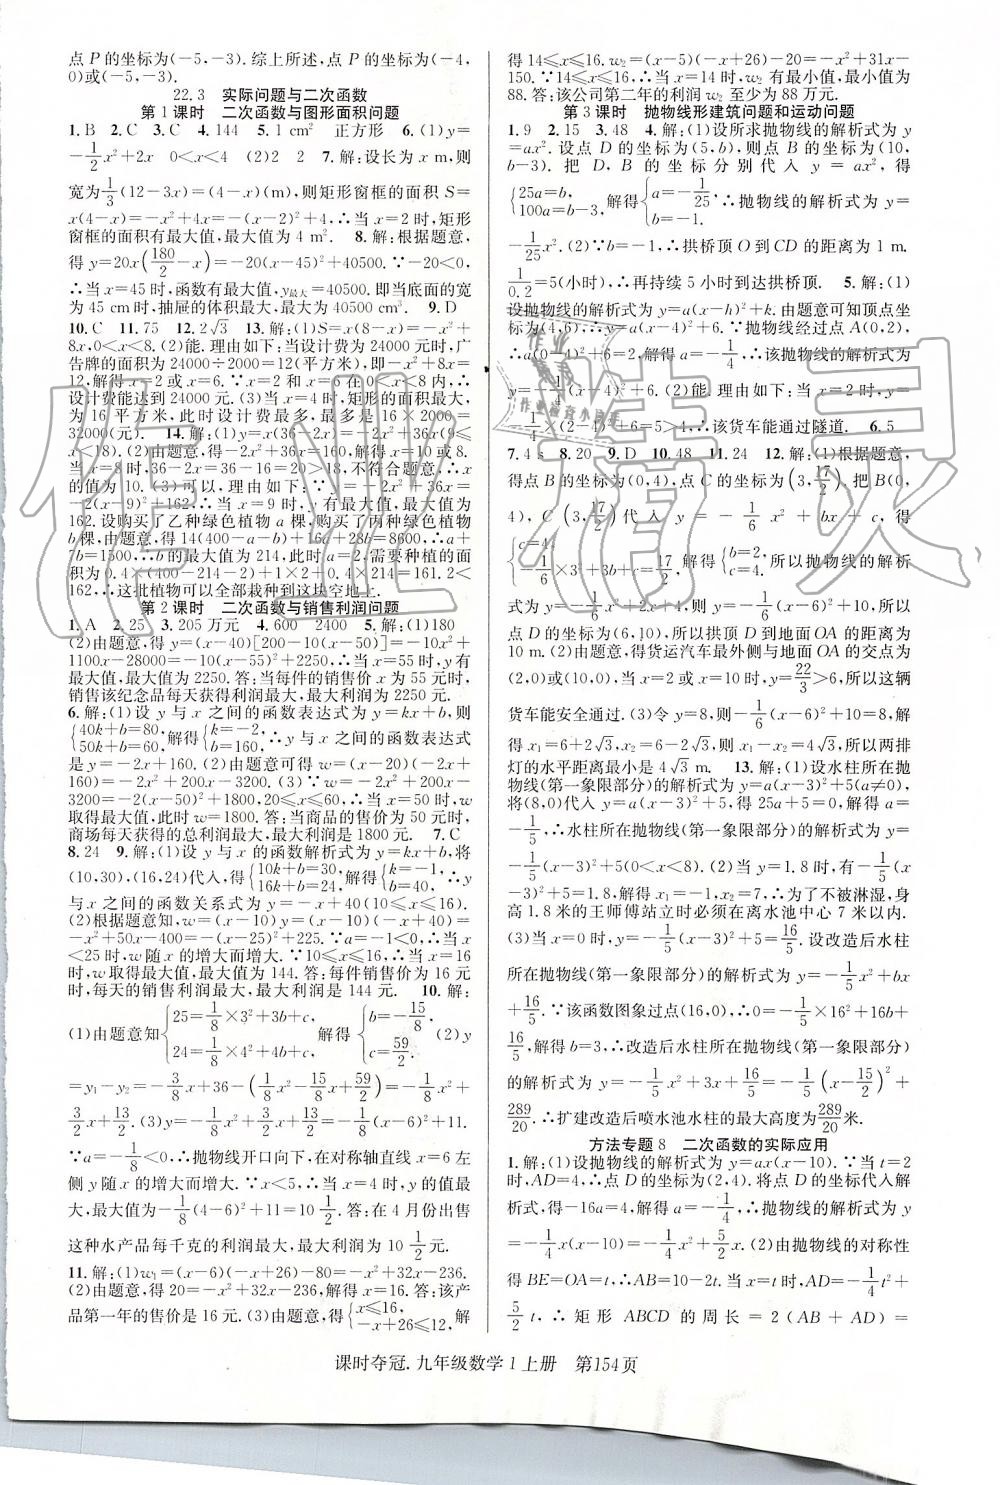 点 P 的坐标为(-5,-3). 综上所述,点 P 的坐标为(-4,
0)或(-5,-3).
22.3 实际问题与二次函数
第 1 课时 二次函数与图形面积问题
1.B 2.C 3.C 4.144 5.1 cm² 正方形 6.(1)y=
-1/2x²+2x 0<x<4 (2)2 2 7.解:设长为 x m,则
宽为1/3(12-3x)=(4-x)(m),则矩形窗框的面积 S=
x(4-x)=-x²+4x=-(x-2)²+4,∴当 x=2 时,矩形
窗框的面积有最大值,最大值为 4 m². 8.解:根据题意,
得 y=20x(180/2-x)=-20(x-45)²+40500.∵-20<
0,∴当 x=45 时,函数有最大值,y最大=40500.即当底面的宽
为 45 cm时,抽屉的体积最大,最大为 40500 cm³. 9.D
10.C 11.75 12.2√3 13.解:(1)S=x(8-x)=-x²+
8x,0<x<8.(2)能.理由如下:当设计费为 24000 元时,广
告牌的面积为 24000÷2000=12(平方米),即-x²+8x=
12,解得 x=2 或 x=6.∵x=2 和 x=6 在 0<x<8 内,∴
设计费能达到 24000 元.(3)当 x=4 时,矩形的面积最大,
为 16 平方米,此时设计费最多,最多是 16×2000=
32000(元). 14.解:(1)y=x(36-2x)=-2x²+36x(9≤
x<18).(2)由题意,得-2x²+36x=160,解得x=10 或 8.
∵当 x=8 时,36-2x=36-16=20>18,不符合题意,∴x
的值为 10.(3)可以,理由如下:∵y=-2x²+36x=
-2(x-9)²+162,∴当 x=9 时,y有最大值,最大值为
162.设购买了乙种绿色植物 a 棵,购买了丙种绿色植物
b 棵,由题意,得 14(400-a-b)+16a+28b=8600,∴a+
7b=1500,∴b 的最大值为 214,此时 a=2,需要种植的面
积为 0.4×(400-214-2)+1×2+0.4×214=161.2<
162,∴这批植物可以全部栽种到这块空地上.
第 2 课时 二次函数与销售利润问题
1.A 2.25 3.205 万元 4.600 2400 5.解:(1)180
(2)由题意,得 y=(x-40)[200-10(x-50)]=-10x²+
1100x-28000=-10(x-55)²+2250,∴当 x=55 时,y有
最大值,最大值为 2250.答:当每件的销售价 x 为 55 元时,
销售该纪念品每天获得利润最大,最大利润为 2250 元.
6.解:(1)设 y 与 x 之间的函数表达式为 y=kx+b,则
{40k+b=80,50k+b=60, 解得{k=-2,b=160, ∴y 与 x 之间的函数表达式
是 y=-2x+160.(2)由题意可得 w=(x-20)(-2x+
160)=-2x²+200x-3200.(3)∵w=-2x²+200x-
3200=-2(x-50)²+1800,20≤x≤60,∴当 x=50 时,w
取得最大值,此时 w=1800.答:当商品的售价为 50 元时,
商场每天获得的总利润最大,最大利润是 1800 元. 7.C
8.24 9.解:(1)设 y 与 x 的函数解析式为 y=kx+b,将
(10,30),(16,24)代入,得{10k+b=30,16k+b=24, 解得{k=-1,b=40, ∴y
与 x 之间的函数关系式为 y=-x+40(10≤x≤16).
(2)根据题意知,w=(x-10)y=(x-10)(-x+40)=
-x²+50x-400=-(x-25)²+225.∵a=-1<0,∴当
x<25 时,w 随 x 的增大而增大.∵10≤x≤16,∴当 x=16
时,w 取得最大值,最大值为 144.答:每件销售价为 16 元
时,每天的销售利润最大,最大利润是 144 元. 10.解:
(1)由题意知{25=1/8×3²+3b+c,24=1/8×4²+4b+c, 解得{b=-15/8,c=59/2. (2)y
=y₁-y₂=-3/8x+36-(1/8x²-15/8x+59/2)=-1/8x²+
3/2x+13/2.(3)y=-1/8x²+3/2x+13/2=-1/8(x-6)²+11.
∵a=-1/8<0,∴抛物线开口向下,在对称轴直线 x=6左
侧 y 随 x 的增大而增大.∵x<5,∴当 x=4 时,y 的值最
大,最大值为-1/8(4-6)²+11=10 1/2.答:在 4 月份出售
这种水产品每千克的利润最大,最大利润为 10 1/2元.
11.解:(1)w₁=(x-6)(-x+26)-80=-x²+32x-236.
(2)由题意,得 20=-x²+32x-236,解得 x=16.答:该产
品第一年的售价是 16 元.(3)由题意,得{x≤16,-x+26≤12, 解
得 14≤x≤16. w₂=(x-5)(-x+26)-20=-x²+31x-
150.∵14≤x≤16,∴当 x=14 时,w₂ 有最小值,最小值为
88.答:该公司第二年的利润 w₂ 至少为 88 万元.
第 3 课时 抛物线形建筑问题和运动问题
1.9 2.15 3.48 4.解:(1)设所求抛物线的解析式为 y
=ax². 设点 D 的坐标为(5,b),则点 B 的坐标为(10,
b-3). 把 D,B 的坐标分别代入 y=ax²,得
{25a=b,100a=b-3, 解得{a=-1/25,b=-1, ∴抛物线的解析式为 y=
-1/25x².(2)∵b=-1,∴拱桥顶 O 到 CD 的距离为 1 m.
1/0.2=5(小时),∴再持续 5 小时到达拱桥顶. 5.解:(1)
设抛物线的解析式为 y=a(x-h)²+k.由题意可知顶点坐
标为(4,6),∴y=a(x-4)²+6.∵抛物线经过点 A(0,2),
∴a(0-4)²+6=2,解得 a=-1/4,∴该抛物线的解析式为
y=-1/4(x-4)²+6.(2)能. 理由如下:当 x=2 时,y=
-1/4×(2-4)²+6=5>4,∴该货车能通过隧道. 6.5
7.4 s 8.20 9.D 10.48 11.24 12.解:(1)根据题意,
得点 B 的坐标为(0,4),点 C 的坐标为(3,17/2),把 B(0,
4),C(3,17/2)代入 y=-1/6x²+bx+c,得
{c=4,-1/6×3²+3b+c=17/2, 解得{b=2,c=4. 所以抛物线的解析
式为 y=-1/6x²+2x+4,则 y=-1/6(x-6)²+10,所以
点 D 的坐标为(6,10),所以拱顶 D 到地面 OA 的距离为
10 m.(2)由题意,得货运汽车最外侧与地面 OA 的交点为
(2,0)或(10,0),当 x=2 或 x=10 时,y=22/3>6,所以这辆
货车能安全通过.(3)令 y=8,则-1/6(x-6)²+10=8,解
得 x₁=6+2√3,x₂=6-2√3,则 x₁-x₂=4√3,所以两排
灯的水平距离最小是 4√3 m. 13.解:(1)设水柱所在抛
物线(第一象限部分)的解析式为 y=a(x-3)²+5(a≠0),
将(8,0)代入 y=a(x-3)²+5,得 25a+5=0,解得 a=
-1/5,∴水柱所在抛物线(第一象限部分)的解析式为 y=
-1/5(x-3)²+5(0<x<8).(2)当 y=1.8 时,有-1/5(x
-3)²+5=1.8,解得 x₁=-1,x₂=7,∴为了不被淋湿,身
高 1.8 米的王师傅站立时必须在离水池中心 7 米以内.
(3)当 x=0 时,y=-1/5(x-3)²+5=16/5.设改造后水柱
所在抛物线(第一象限部分)的解析式为 y=-1/5x²+bx
+16/5.∵该函数图象过点(16,0),∴0=-1/5×16²+16b+
16/5,解得 b=3,∴改造后水柱所在抛物线(第一象限部分)
的解析式为 y=-1/5x²+3x+16/5=-1/5(x-15/2)²+
289/20.∴扩建改造后喷水池水柱的最大高度为289/20米.
方法专题 8 二次函数的实际应用
1.解:(1)设抛物线的解析式为 y=ax(x-10).∵当 t=2
时,AD=4,∴点 D 的坐标为(2,4).将点 D 坐标代入解
析式,得-16a=4,解得 a=-1/4,∴抛物线的解析式为 y
=-1/4x(x-10)=-1/4x²+5/2x.(2)由抛物线的对称性
得 BE=OA=t,∴AB=10-2t.当 x=t 时,AD=-1/4t²+
5/2t,∴矩形 ABCD 的周长=2(AB+AD)=
课时夺冠.九年级数学 1 上册 第154页
作业精灵
作业检查小助手